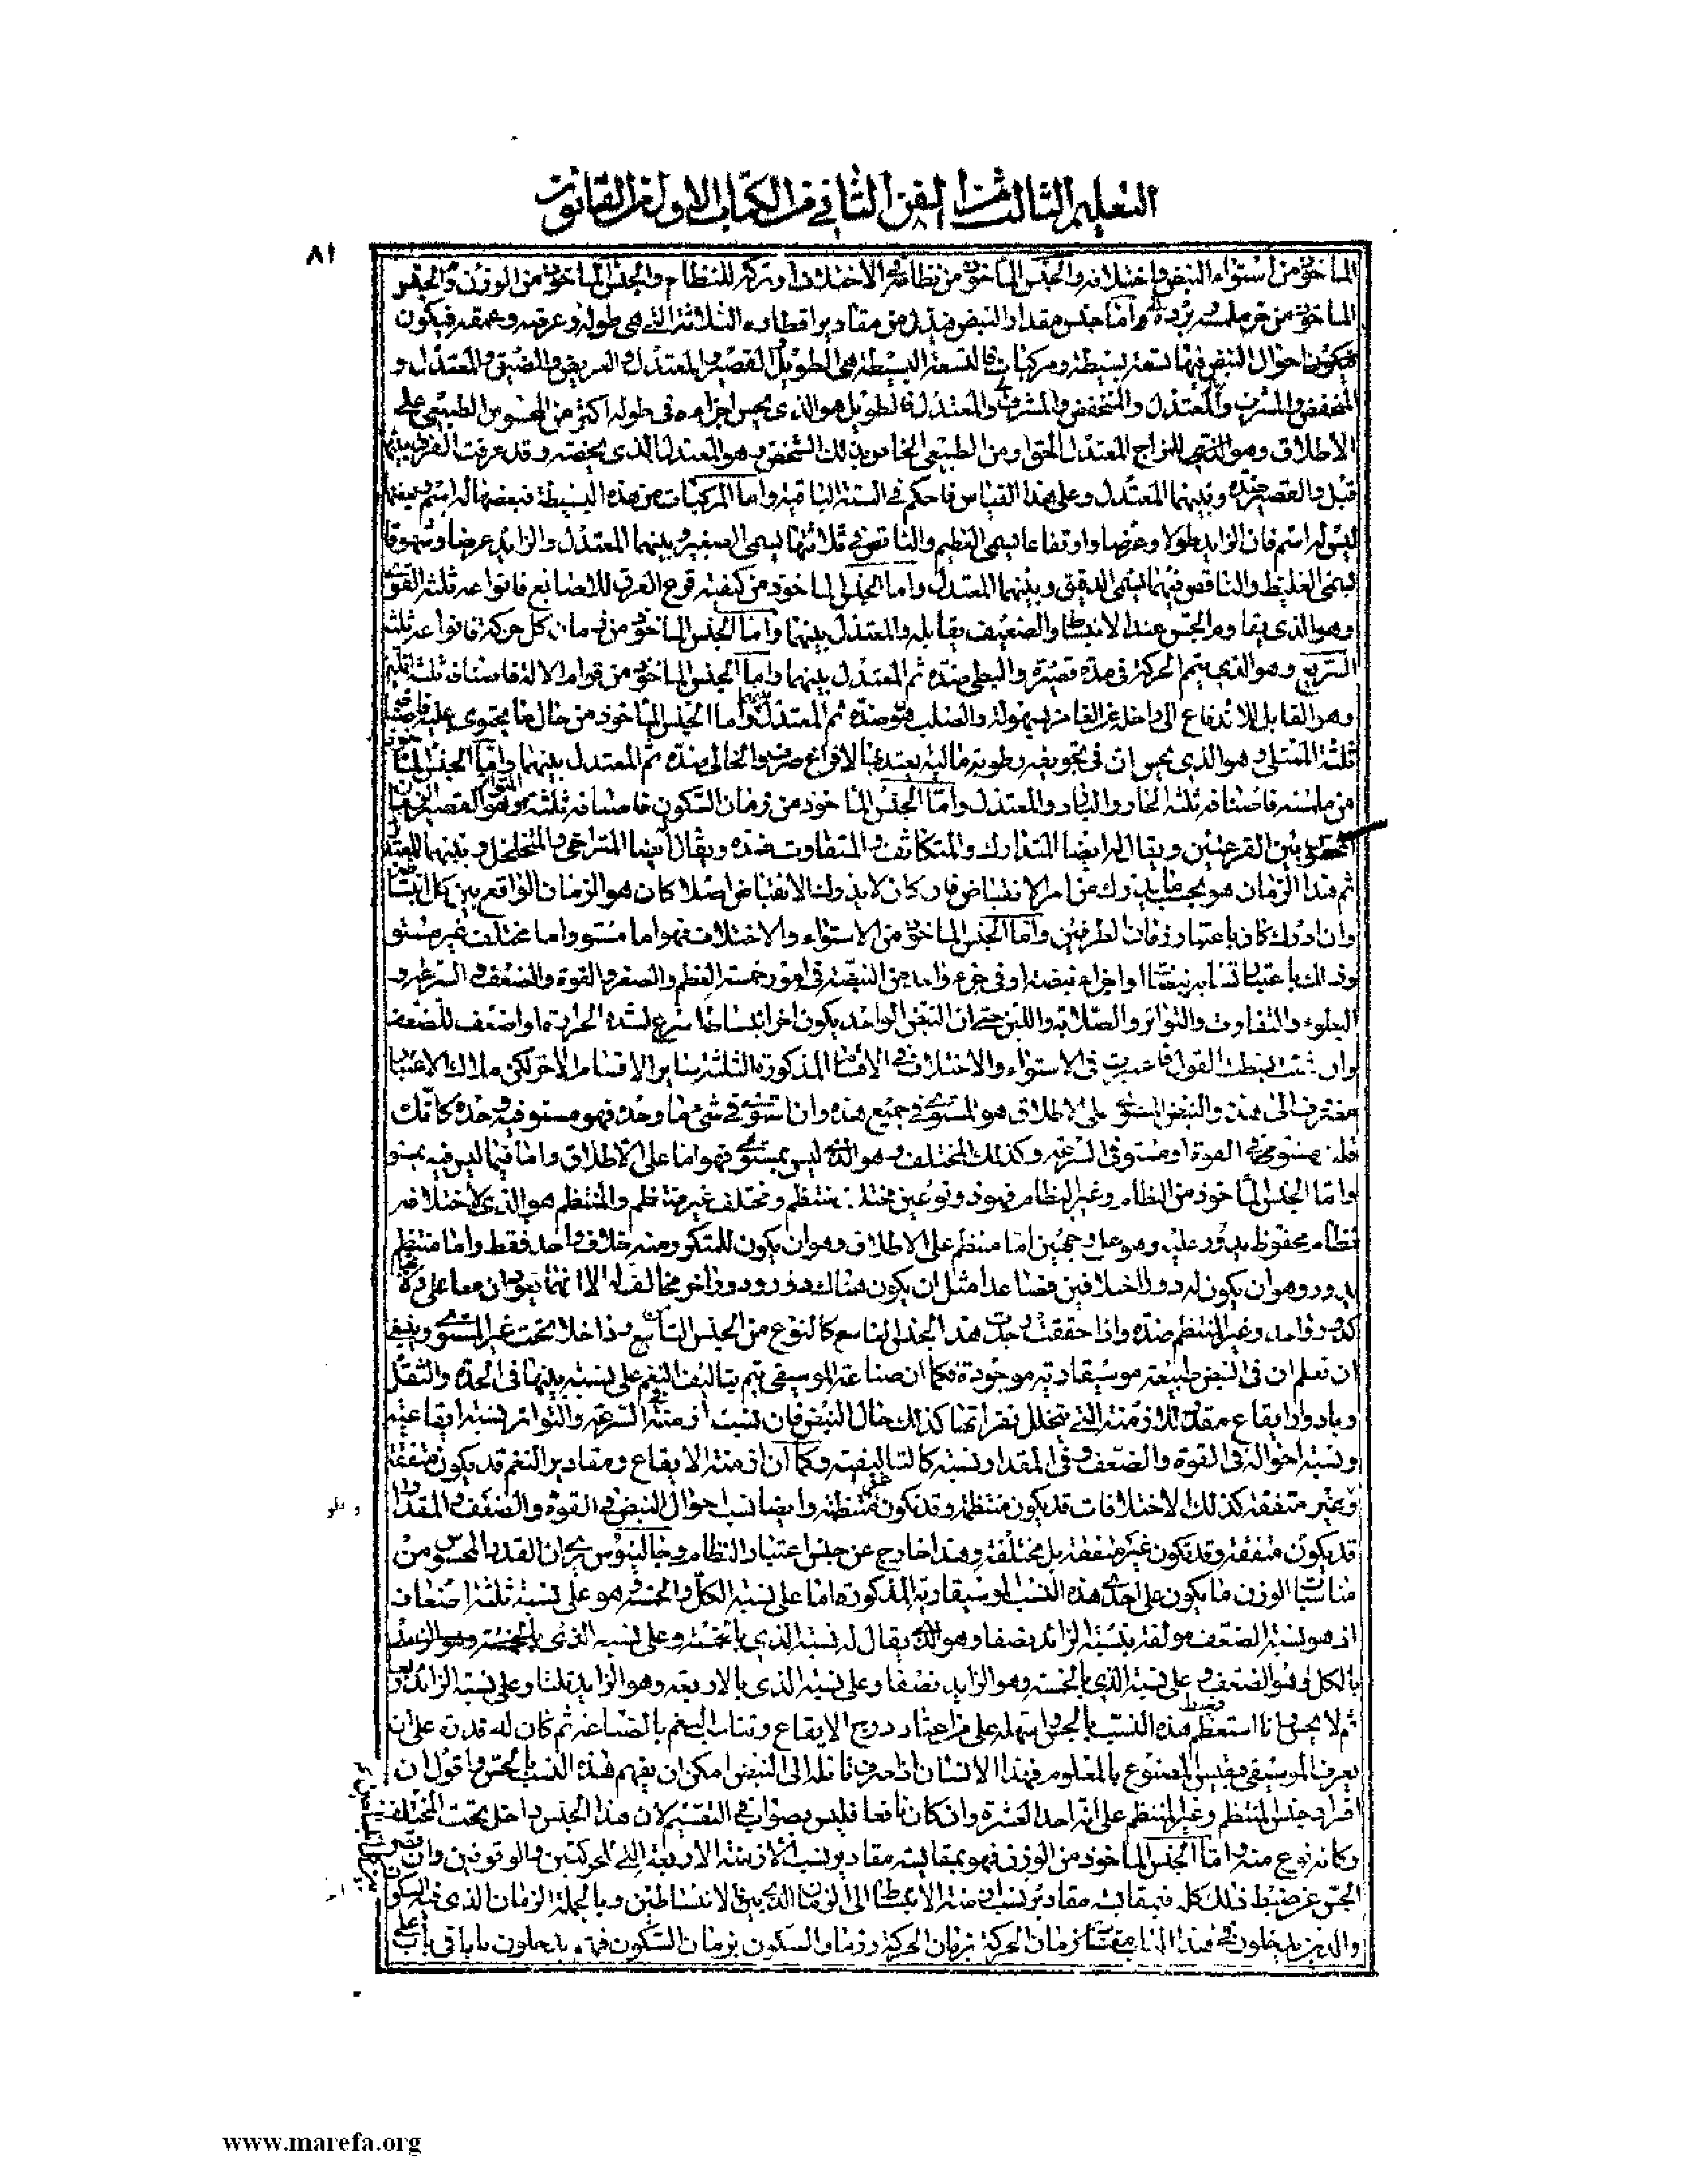 التعليم الثالث من الفن الثاني من الكتاب الاول من القانون
٨١
الماخوذ من استواء النبض واختلافه والجنس الماخوذ من نظامه في الاختلاف او تركه للنظام والجنس الماخوذ من الوزن والجنس
الماخوذ من ملمسه واما جنس مقدار النبض فيدل من مقادير اقطاره الثلاثة التي هي طوله وعرضه وعمقه فيكون
فيكون احوال النبض فيها تسعة بسيطة ومركبات فالتسعة البسيطة هي الطويل والقصير والمعتدل والعريض والضيق والمعتدل و
المنخفض والمشرف والمعتدل فالطويل هو الذي يحس اجزاءه في طوله اكثر من المحسوس الطبيعي على
الاطلاق وهو المزاج المعتدل الحق او من الطبيعي الخاص بذلك الشخص وهو المعتدل الذي يخصه وقد عرفت الفرق بينهما
قبل والقصير ضده وبينهما المعتدل وعلى هذا القياس فاحكم في الستة الباقية واما المركبات من هذه البسيطة فبعضها له اسم وبعضها
ليس له اسم فان الزايد طولا وعرضا وارتفاعا يسمى العظيم والناقص في ثلاثتها يسمى الصغير وبينهما المعتدل والزايد عرضا وشهوقا
يسمى الغليظ والناقص فيهما يسمى الدقيق وبينهما المعتدل واما الجنس الماخوذ من كيفية قرع العرق للاصابع فانواعه ثلثة القوي
وهو الذي يقاوم الجس عند الانبساط والضعيف يقابله والمعتدل بينهما واما الجنس الماخوذ من زمان كل حركة فانواعه ثلثة
السريع وهو الذي يتم الحركة في مدة قصيرة والبطي ضده ثم المعتدل بينهما واما الجنس الماخوذ من قوام الالة فاصنافه ثلثة اللين
وهو القابل للاندفاع الى داخل عن الغامز بسهولة والصلب ضده ثم المعتدل بينهما واما الجنس الماخوذ من حال ما يحتوي عليه فاصنافه
ثلثة الممتلي وهو الذي يحس ان في تجويفه رطوبة مالية يعتد بها لا فراغ صرف والخالي ضده ثم المعتدل بينهما واما الجنس الماخوذ
من ملمسه فاصنافه ثلثة الحار والبارد والمعتدل واما الجنس الماخوذ من زمان السكون فاصنافه ثلثة المتواتر وهو القصير الزمان
المحسوس بين القرعتين ويقال له ايضا المتدارك والمتكاثف والمتفاوت ضده ويقال ايضا المتراخي والمتخلخل وبينهما المعتدل
ثم هذا الزمان هو بحسب ما يدرك من امر الانقباض فان كان لا يدرك الانقباض اصلا كان هو الزمان الواقع بين كل انبساطين
وان ادرك كان باعتبار زمان الطرفين واما الجنس الماخوذ من الاستواء والاختلاف فهو اما مستو واما مختلف غير مستو
وذلك باعتبار تشابه نبضات او اجزاء نبضة او في جزء واحد من النبضة في امور خمسة العظم والصغر والقوة والضعف والسرعة و
البطوء والتفاوت والتواتر والصلابة واللين حتى ان النبض الواحد يكون اخر انبساطه اسرع لشدة الحرارة او اضعف للضعف
وان شئت بسطت القول فاعتبرت في الاستواء والاختلاف في الاقسام المذكورة الثلثة ساير الاقسام الاخر لكن ملاك الاعتبار
مصروف الى هذه والنبض المستوي على الاطلاق هو المستوي في جميع هذه وان استوى في شئ منها وحده فهو مستو فيه وحده كانك
قلت مستو في القوة او مستو في السرعة وكذلك المختلف وهو الذي ليس بمستو فهو اما على الاطلاق واما فيما ليس فيه بمستو
واما الجنس الماخوذ من النظام وغير النظام فهو ذو نوعين مختلف منتظم ومختلف غير منتظم والمنتظم هو الذي لاختلافه
نظام محفوظ يدور عليه وهو على وجهين اما منتظم على الاطلاق وهو ان يكون المتكرر منه خلاف واحد فقط واما منتظم
يدور وهو ان يكون له دورا اختلافين فصاعدا مثل ان يكون هناك دور ودور اخر مخالف له الا انهما يعودان معا على ولائهما
كدور واحد وغير المنتظم ضده واذا حققت وجدت هذا الجنس التاسع كالنوع من الجنس الثامن وداخلا تحت غير المستوي وينبغي
ان تعلم ان في النبض طبيعة موسيقاوية موجودة فكما ان صناعة الموسيقى يتم بتاليف النغم على نسبة بينها في الحدة والثقل
وبادوار ايقاع مقدار الازمنة التي يتخلل نقراتها كذلك حال النبض فان نسبة ازمنته في السرعة والتواتر نسبة ايقاعية
ونسبة احواله في القوة والضعف وفي المقدار نسبة كالتاليفية وكما ان ازمنة الايقاع ومقادير النغم قد يكون متفقة
وغير متفقة كذلك الاختلافات قد يكون منتظمة وقد تكون غير منتظمة وايضا نسب احوال النبض في القوة والضعف والمقدار
قد يكون متفقة وقد تكون غير متفقة بل مختلفة وهذا خارج عن جنس اعتبار النظام وجالينوس يرى ان القدر المحسوس من
مناسبات الوزن ما يكون على احدى هذه النسب الموسيقاوية المذكورة اما على نسبة الكل والخمسة وهو على نسبة ثلثة اضعاف
اذ هو نسبة الضعف مولفة بنسبة الزائد نصفا وهو الذي يقال له نسبة الذي بالخمسة وعلى نسبة الذي
بالكل وهو الضعف وعلى نسبة الذي بالخمسة وهو الزايد نصفا وعلى نسبة الذي بالاربعة وهو الزايد ثلثا وعلى نسبة الزائد ربعا
ثم لا يحس وانا استعظم ضبط هذه النسب بالجس واسهله على من اعتاد درج الايقاع وتناسب النغم بالصناعة ثم كان له قدرة على ان
يعرف الموسيقى فيقيس المصنوع بالمعلوم فهذا الانسان اذا صرف تامله الى النبض امكن ان يفهم هذه النسب بالجس واقول ان
افراد جنس المنتظم وغير المنتظم على انه احد العشرة وان كان نافعا فليس بصواب في التقسيم لان هذا الجنس داخل تحت المختلف
وكانه نوع منه واما الجنس الماخوذ من الوزن فهو بمقايسة مقادير نسب الازمنة الاربعة التي للحركتين والوقوفين وان قصر
الجس عن ضبط ذلك كله فبمقايسة مقادير نسب ازمنة الانبساط الى الزمان الذي بين الانبساطين وبالجملة الزمان الذي فيه الحركة
والذين يدخلون في هذا الباب مقايسة زمان الحركة بزمان الحركة وزمان السكون بزمان السكون فهم يدخلون بابا في باب
www.marefa.org